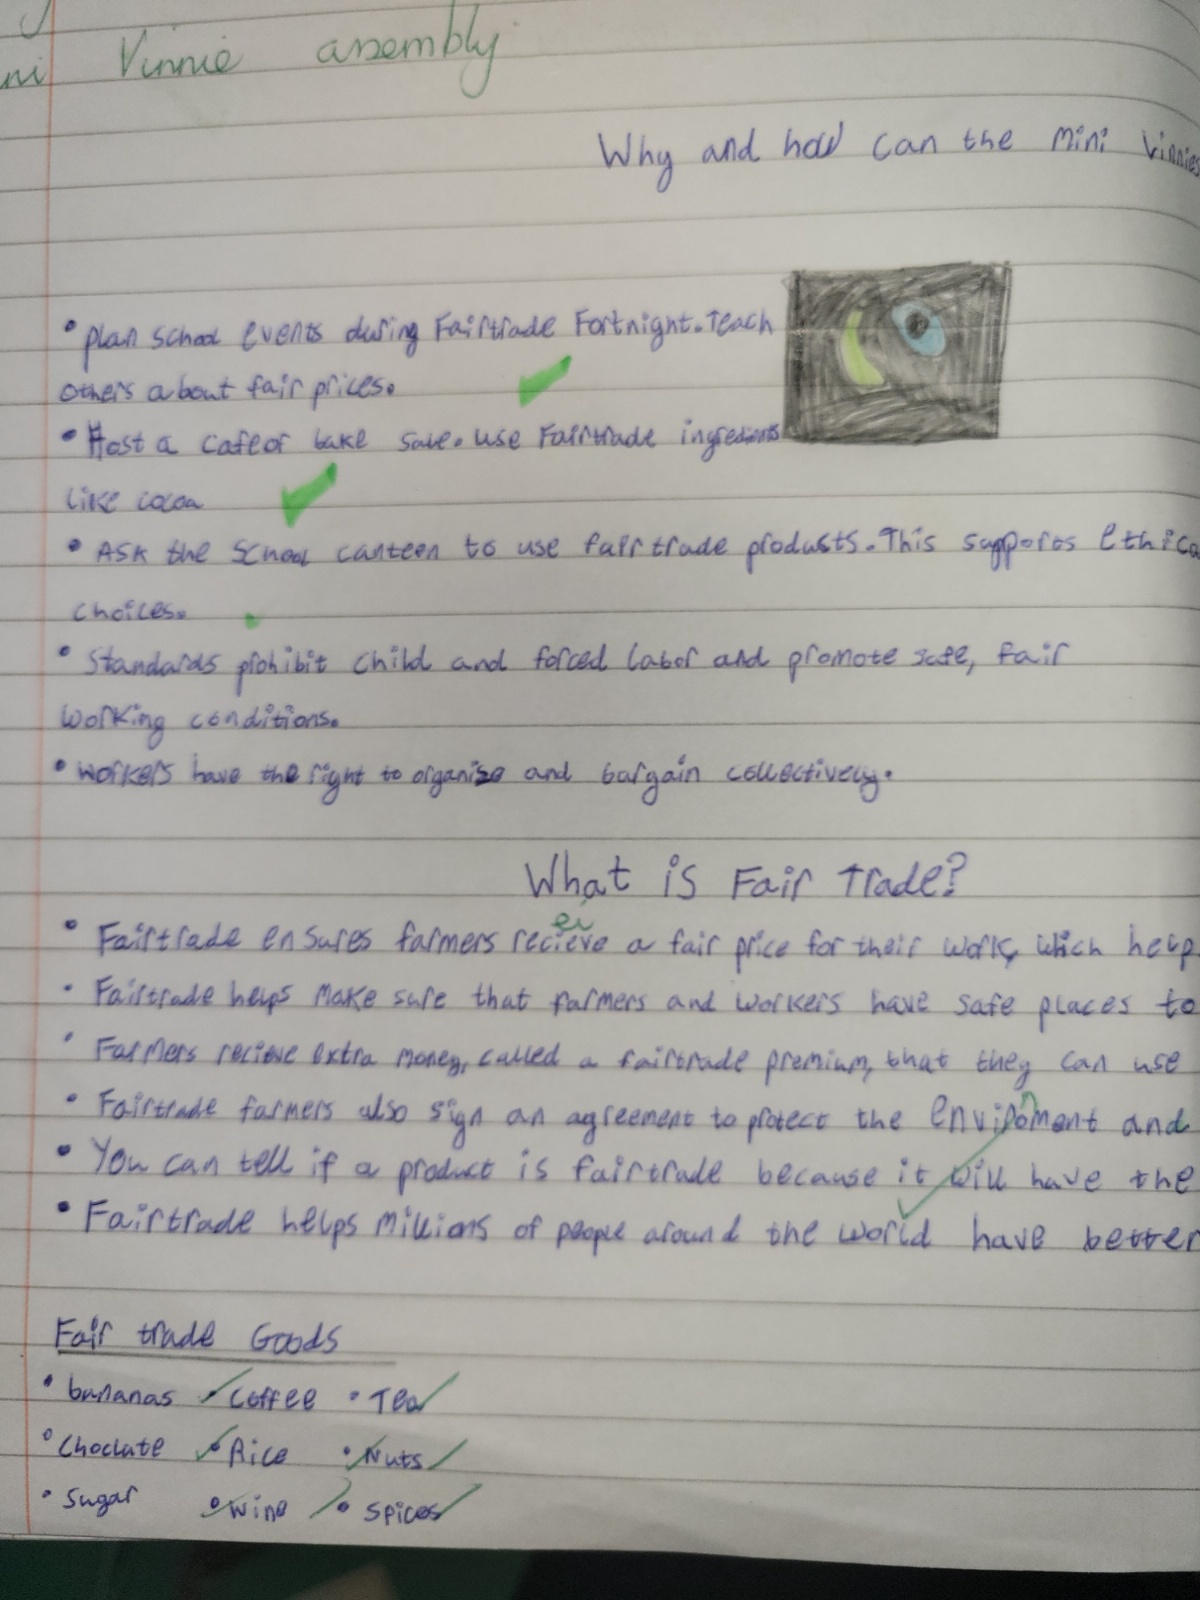 Vinnie assembly
Why and how can the Mini Vinnies
• Plan school events during Fairtrade Fortnight. Teach
others about fair prices.
• Host a cafe or bake sale. Use Fairtrade ingredients
like cocoa
• Ask the School canteen to use fairtrade produsts. This supports ethica
choices.
• Standards prohibit child and forced labor and promote safe, fair
working conditions.
• Workers have the right to organise and bargain collectively.
What is Fair Trade?
ei
• Fairtrade ensures farmers recieve a fair price for their work, which help
• Fairtrade helps make sure that farmers and workers have safe places to
• Farmers recieve extra money, called a fairtrade premium, that they can use
• Fairtrade farmers also sign an agreement to protect the and
• You can tell if a product is fairtrade because it will have the
• Fairtrade helps millions of people around the world have better
Fair trade Goods
• bananas • Coffee • Tea
• Choclate • Rice • Nuts
• Sugar • Wine • Spices